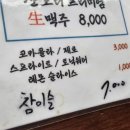 生백주 8,000
코카콜라 / 제로 3,000
스프라이트 / 토닉워터
레몬 슬라이스 1,000
참이슬 7.000